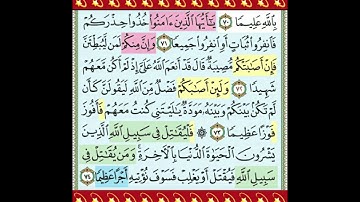 بِٱللَّهِ عَلِيمٗا ٧٠ يَٰٓأَيُّهَا ٱلَّذِينَ ءَامَنُواْ خُذُواْ حِذۡرَكُمۡ
فَٱنفِرُواْ ثُبَاتٍ أَوِ ٱنفِرُواْ جَمِيعٗا ٧١ وَإِنَّ مِنكُمۡ لَمَن لَّيُبَطِّئَنَّ
فَإِنۡ أَصَٰبَتۡكُم مُّصِيبَةٞ قَالَ قَدۡ أَنۡعَمَ ٱللَّهُ عَلَيَّ إِذۡ لَمۡ أَكُن مَّعَهُمۡ
شَهِيدٗا ٧٢ وَلَئِنۡ أَصَٰبَكُمۡ فَضۡلٞ مِّنَ ٱللَّهِ لَيَقُولَنَّ كَأَن
لَّمۡ تَكُنۢ بَيۡنَكُمۡ وَبَيۡنَهُۥ مَوَدَّةٞ يَٰلَيۡتَنِي كُنتُ مَعَهُمۡ فَأَفُوزَ
فَوۡزًا عَظِيمٗا ٧٣ فَلۡيُقَٰتِلۡ فِي سَبِيلِ ٱللَّهِ ٱلَّذِينَ
يَشۡرُونَ ٱلۡحَيَوٰةَ ٱلدُّنۡيَا بِٱلۡأٓخِرَةِۚ وَمَن يُقَٰتِلۡ فِي
سَبِيلِ ٱللَّهِ فَيُقۡتَلۡ أَوۡ يَغۡلِبۡ فَسَوۡفَ نُؤۡتِيهِ أَجۡرًا عَظِيمٗا ٧٤